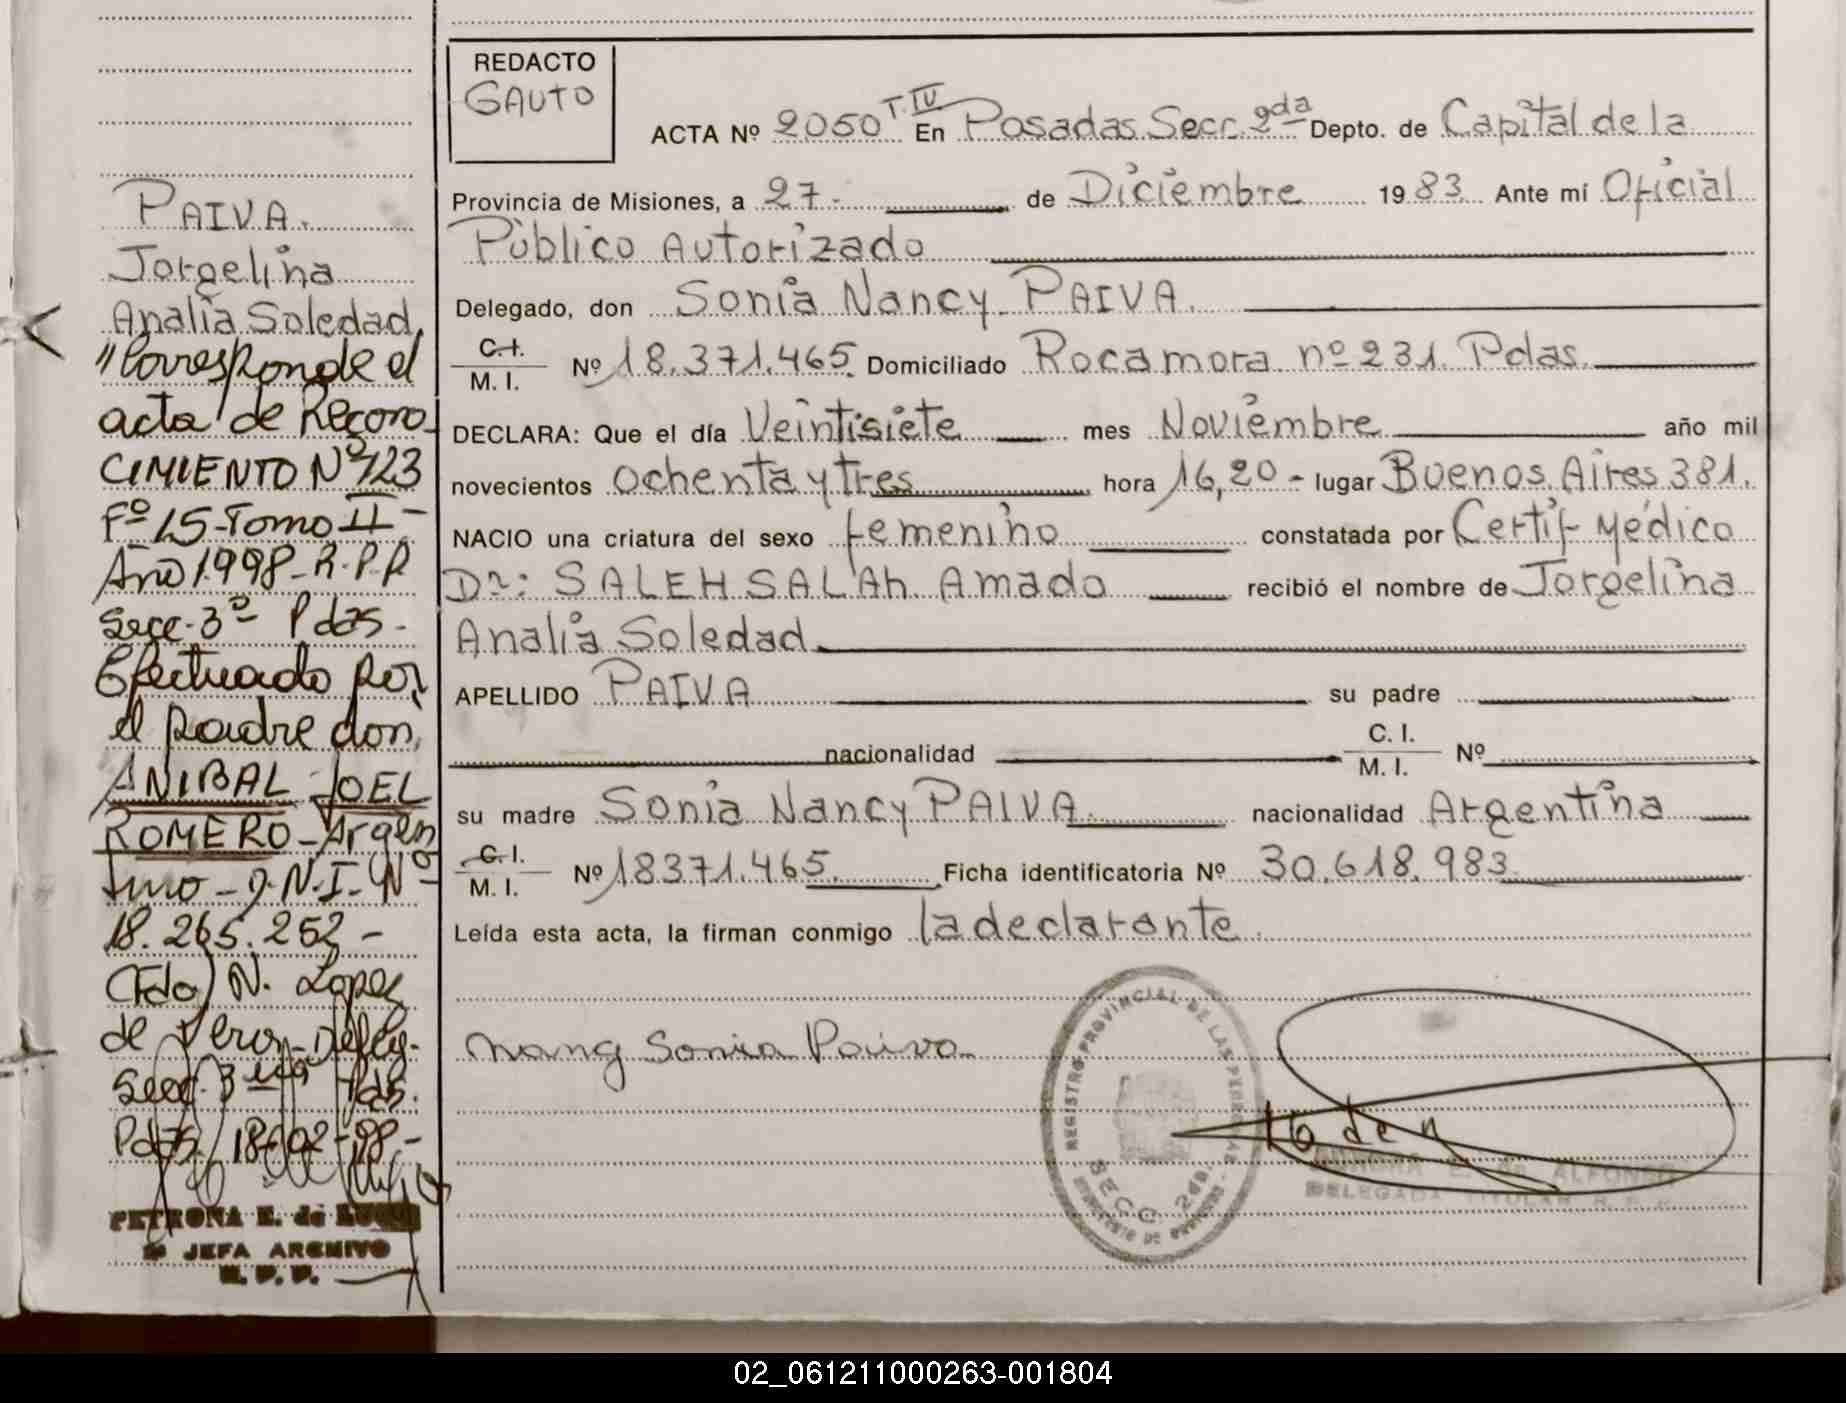 PAIVA.
Jorgelina
Analia Soledad
"Corresponde el
acta de Recono-
CIMIENTO Nº 123
Fº 15-Tomo II-
Año 1.998-R.P.P
Secc. 3ª Pdas.
Efectuado por
el padre don
ANIBAL JOEL
ROMERO-Argen
tino-D.N.I-Nº
18.265.252-
Fdo) N. Lopez
de Veron-Deleg.
Secc. 3era Pdas.
Pdas. 18-02-98-
PETRONA E. de
JEFA ARCHIVO
R. P. P.
REDACTO
GAUTO
ACTA Nº 2050 T.IV En Posadas Secc. 2da Depto. de Capital de la
Provincia de Misiones, a 27- de Diciembre 1983 Ante mí Oficial
Público Autorizado
Delegado, don Sonia Nancy PAIVA.
C.I. M. I. Nº 18.371.465. Domiciliado Rocamora nº 231. Pdas.
DECLARA: Que el día Veintisiete mes Noviembre año mil
novecientos ochenta y tres hora 16,20- lugar Buenos Aires 381.
NACIO una criatura del sexo femenino constatada por Certif Médico
Dr: SALEH SALAh Amado recibió el nombre de Jorgelina
Analia Soledad
APELLIDO PAIVA su padre
nacionalidad C. I. M. I. Nº
su madre Sonia Nancy PAIVA nacionalidad Argentina
C. I. M. I. Nº 18371.465. Ficha identificatoria Nº 30.618.983
Leída esta acta, la firman conmigo la declarante.
Nancy Sonia Paiva
REGISTRO PROVINCIAL DE LAS PERSONAS
SECC. 2da.
de ALFONSO
DELEGADA TITULAR R. P. P.
02_061211000263-001804